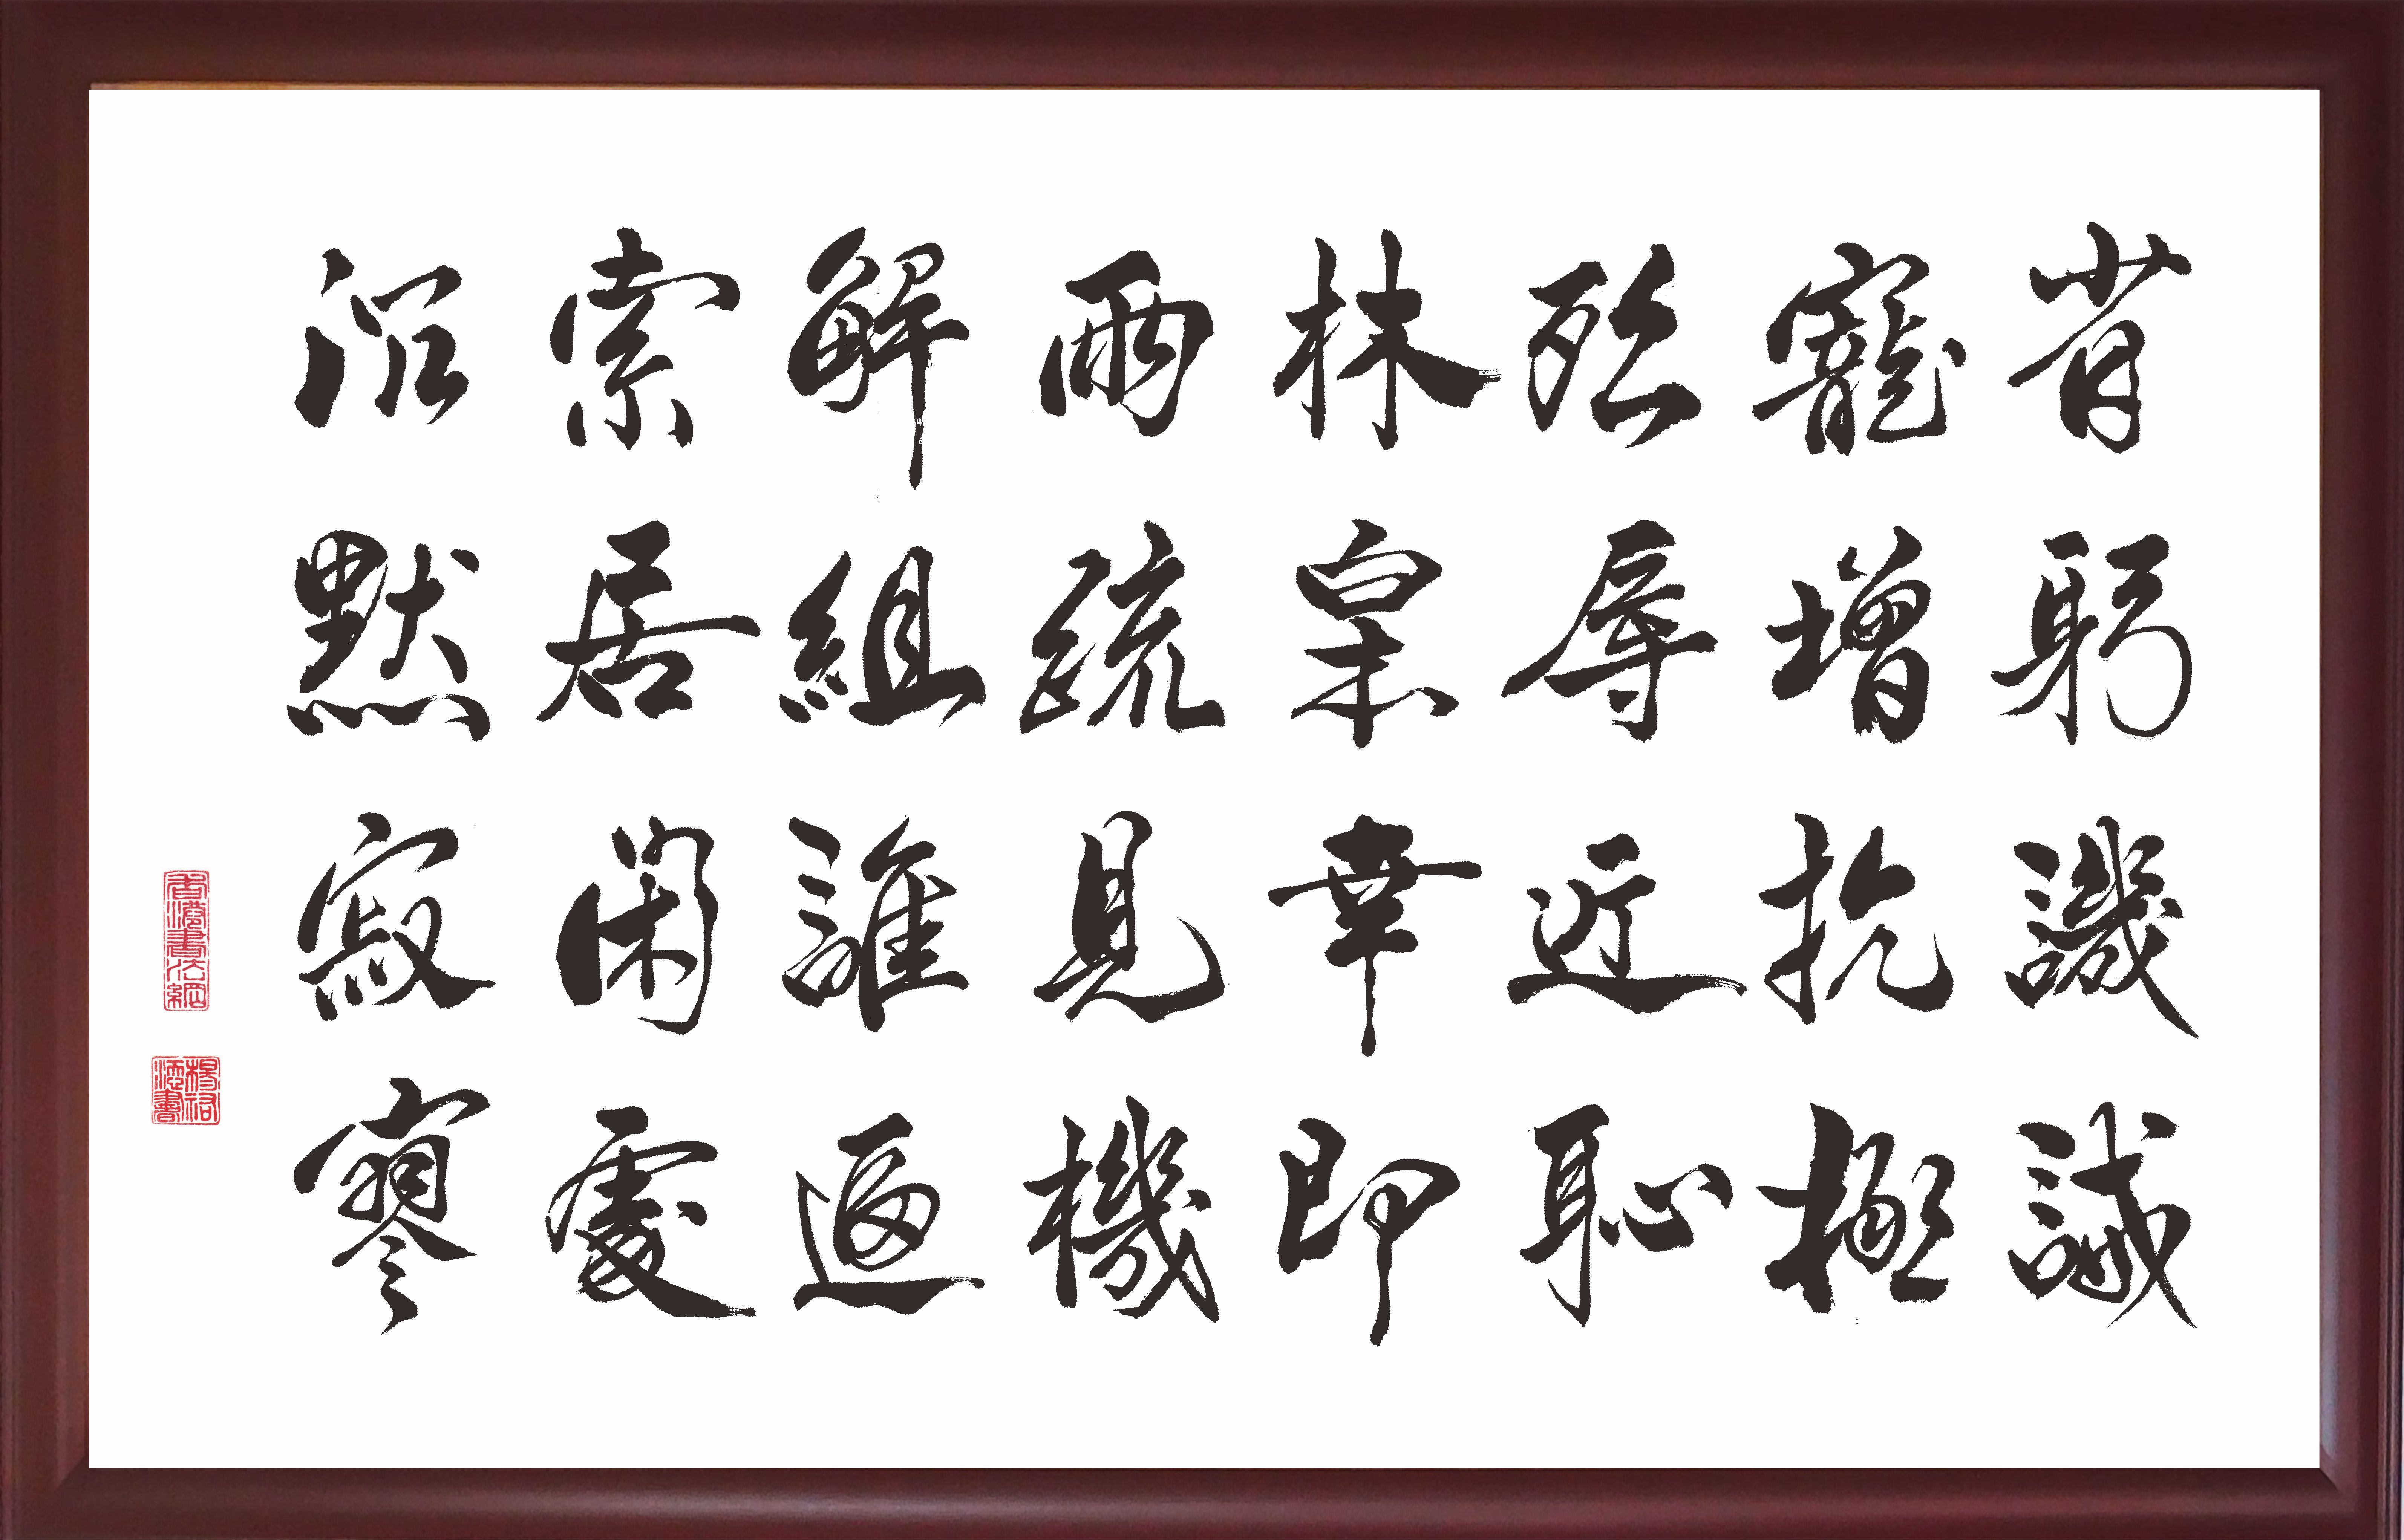 省躬譏誡
寵增抗極
殆辱近恥
林皋幸即
兩疏見機
解組誰逼
索居閑處
沉默寂寥